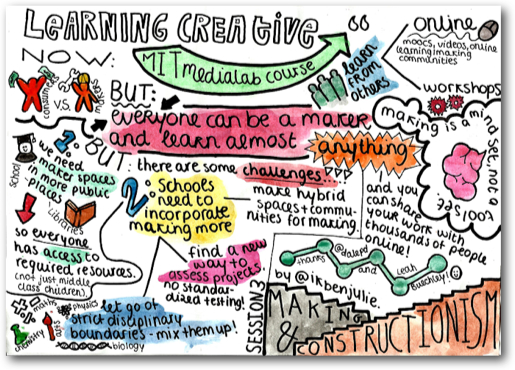 LEARNING CREATIVE
MIT medialab course
NOW:
consumer
v.s.
BUT:
everyone can be a maker
and learn almost
anything
learn
from
others
online
moocs, videos, online
learning/making
communities
workshops
making is a mind set, not a
tools set
and you
can share
your work with
thousands of people
online!
BUT:
there are some challenges...
1.
we need
maker spaces
in more public
places
School
Libraries
so everyone
has access to
required resources.
(not just middle
class children)
2.
Schools
need to
incorporate
making more
make hybrid
spaces + commu-
nities for making.
find a new
way to
assess projects.
no standar-
dized testing!
let go of
strict disciplinary
boundaries - mix them up!
maths
physics
chemistry
arts
biology
thanks
and
Leah
Buechley!
by @ikbenjulie.
SESSION 3
MAKING
& CONSTRUCTIONISM